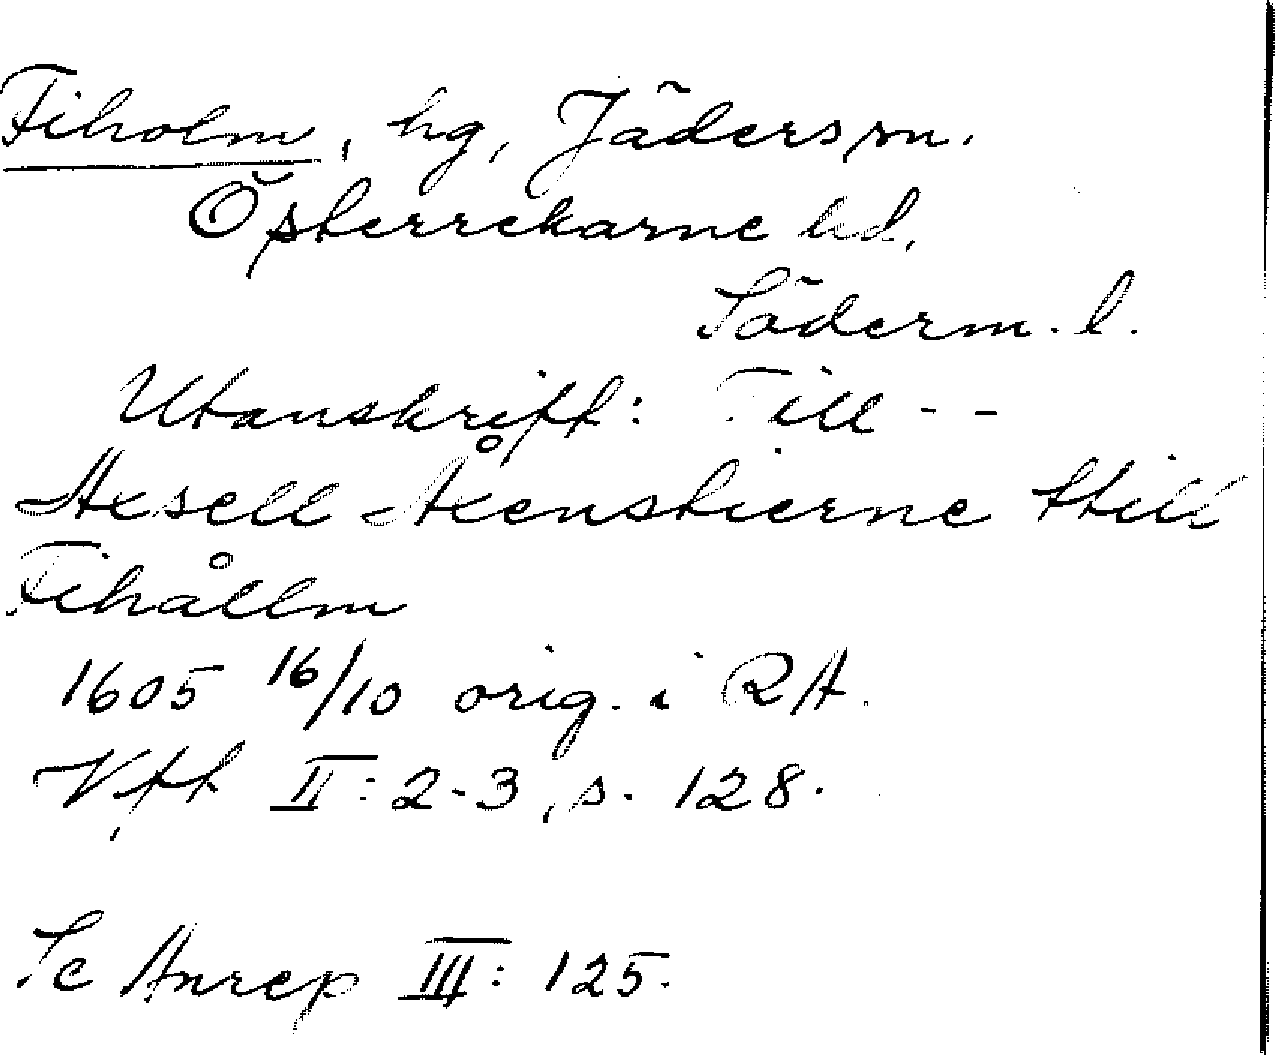 Fiholm, hg, Jäders sn.
Österrekarne hd,
Söderm. l.
Utanskrift: Till - -
Axsell Åxenstierne till
Fihållm
1605 16/10 orig. i RA.
Vfft II: 2-3, s. 128.
Se Anrep III: 125.